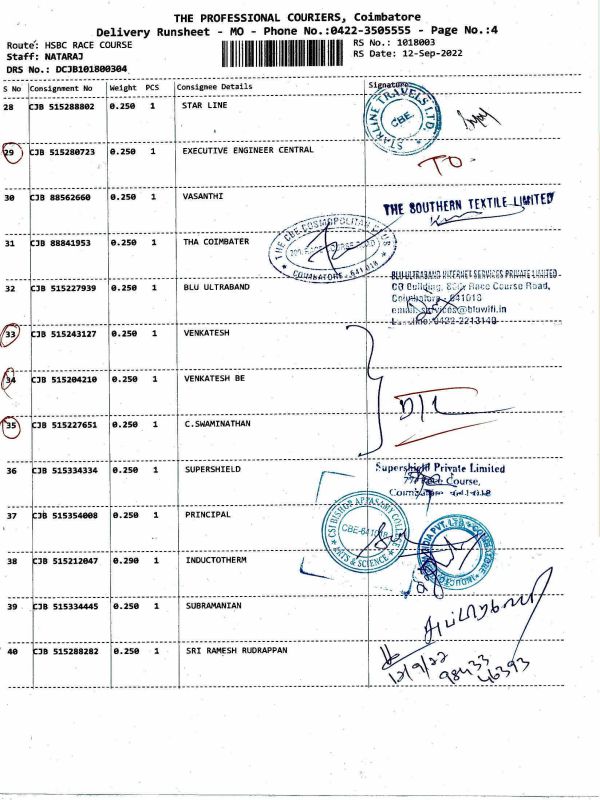 THE PROFESSIONAL COURIERS, Coimbatore
Delivery Runsheet - MO - Phone No.:0422-3505555 - Page No.:4
Route: HSBC RACE COURSE RS No.: 1018003
Staff: NATARAJ RS Date: 12-Sep-2022
DRS No.: DCJB101800304
S No Consignment No Weight PCS Consignee Details Signature
28 CJB 515288802 0.250 1 STAR LINE
STARLINE TRAVELS LTD.
CBE
29 CJB 515280723 0.250 1 EXECUTIVE ENGINEER CENTRAL
TO
30 CJB 88562660 0.250 1 VASANTHI
THE SOUTHERN TEXTILE LIMITED
31 CJB 88841953 0.250 1 THA COIMBATER
THE CBE COSMOPOLITAN CLUB
COIMBATORE - 641 018
32 CJB 515227939 0.250 1 BLU ULTRABAND
BLU ULTRABAND INTERNET SERVICES PRIVATE LIMITED
CG Building, Race Course Road,
Coimbatore - 641018
email: services@bluwifi.in
0422-2213140
33 CJB 515243127 0.250 1 VENKATESH
34 CJB 515204210 0.250 1 VENKATESH BE
D/L
35 CJB 515227651 0.250 1 C.SWAMINATHAN
36 CJB 515334334 0.250 1 SUPERSHIELD
Supershield Private Limited
Course,
37 CJB 515354008 0.250 1 PRINCIPAL
CSI BISHOP APPASAMY COLLEGE
ARTS & SCIENCE
CBE-641018
38 CJB 515212047 0.290 1 INDUCTOTHERM
39 CJB 515334445 0.250 1 SUBRAMANIAN
40 CJB 515288282 0.250 1 SRI RAMESH RUDRAPPAN
12/9/22
98433
46393